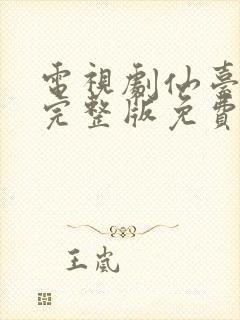 電視劇仙臺
完整版免費
王嵐